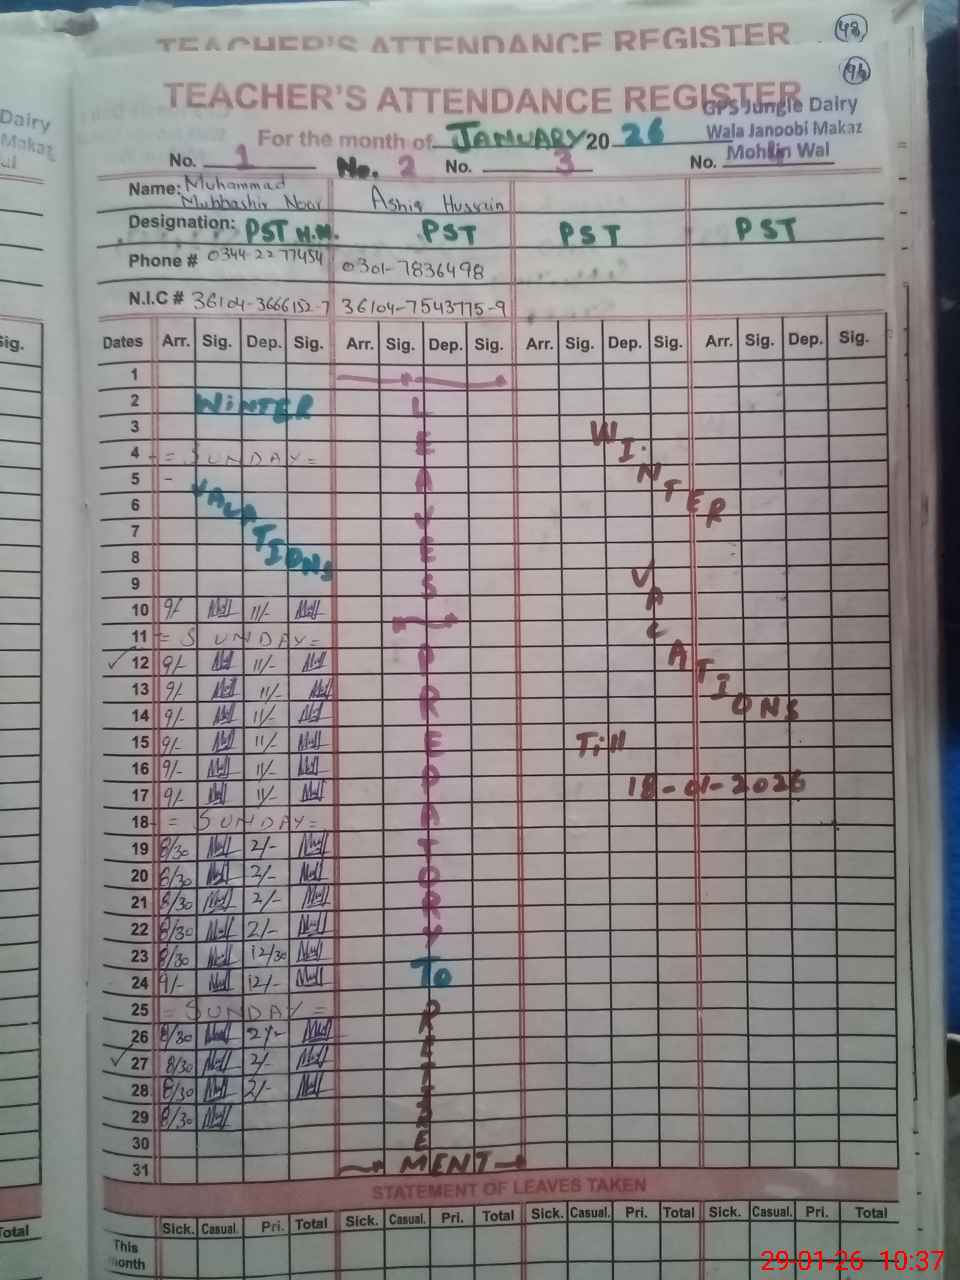 48
TEACHER'S ATTENDANCE REGISTER
94
TEACHER'S ATTENDANCE REGISTER
GPS Jungle Dairy
Wala Janoobi Makaz
Mohsin Wal
For the month of JANUARY 20 26
No. 1 No. 2 No. 3 No. 4
Name: Muhammad Mubbashir Noor Ashiq Hussain
Designation: PST H.M. PST PST PST
Phone # 0344-2277454 0301-7836498
N.I.C # 36104-3666152-7 36104-7543775-9
Dates Arr. Sig. Dep. Sig. Arr. Sig. Dep. Sig. Arr. Sig. Dep. Sig. Arr. Sig. Dep. Sig.
1
2 WINTER
3
4 = SUNDAY =
5 -
6 VACATIONS
7
8
9
10 9/- 11/-
11 = SUNDAY =
12 9/- 11/-
13 9/- 11/-
14 9/- 11/-
15 9/- 11/-
16 9/- 11/-
17 9/- 11/-
18 = SUNDAY =
19 8/30 2/-
20 8/30 2/-
21 8/30 2/-
22 8/30 2/-
23 8/30 12/30
24 9/- 12/-
25 = SUNDAY =
26 8/30 2/-
27 8/30 2/-
28 8/30 2/-
29 8/30
30
31
LEAVES
PREPATORY
To
RETIRE
MENT
WINTER
VACATIONS
Till
18-01-2026
STATEMENT OF LEAVES TAKEN
Sick. Casual. Pri. Total Sick. Casual. Pri. Total Sick. Casual. Pri. Total Sick. Casual. Pri. Total
This
month
Dairy
Makaz
Sig.
Total
29-01-26 10:37